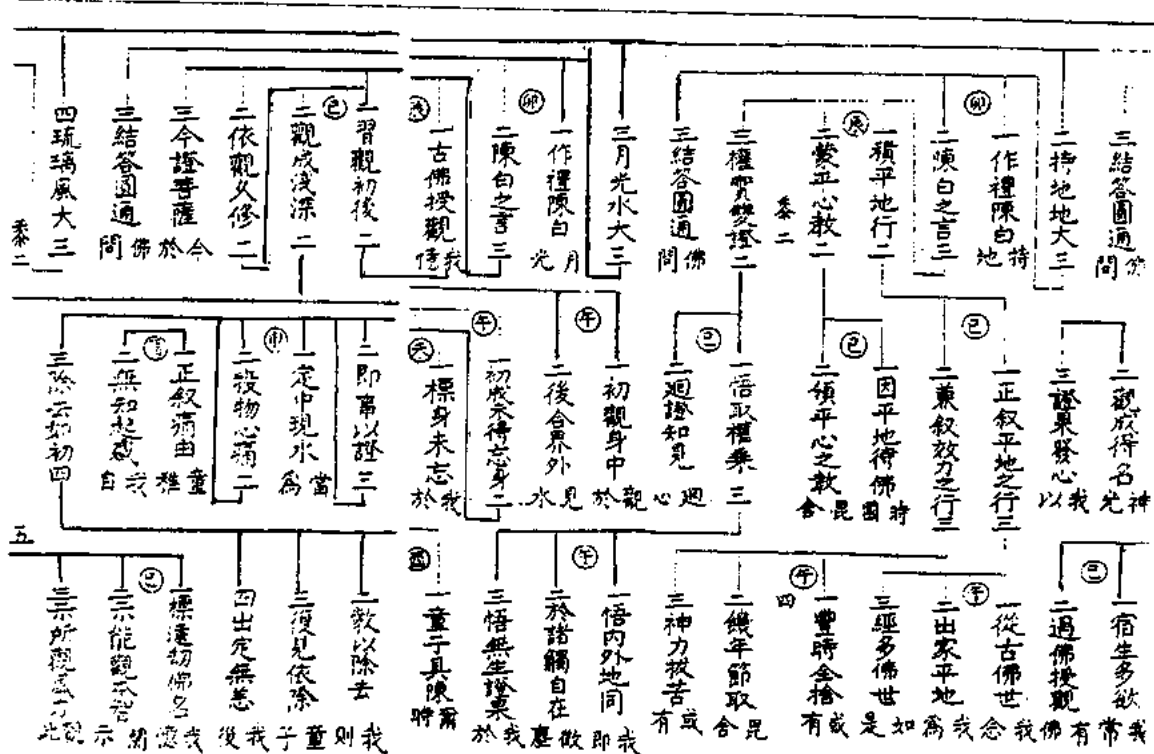 三結答圓通
佛問
二持地地大三
一作禮陳白
持地
卯
二陳白之言三
一積平地行二
辰
二蒙平心教二
黍二
三權實雙證二
三結答圓通
佛問
三月光水大三
一作禮陳白
月光
卯
二陳白之言三
一古佛授觀
我憶
辰
一習觀初後二
巳
二觀成淺深二
二依觀久修二
三今證菩薩
今於
三結答圓通
佛問
四琉璃風大三
黍二
二觀成得名
神光
三證果發心
我以
一正叙平地之行三
巳
二兼叙效力之行三
一因平地待佛
時國毘舍
巳
二領平心之教
一悟取權乘三
巳
二迴證知見
一初觀身中
迴心觀於
午
二後合界外
見水
午
一初成未得忘身二
一標身未忘
我於
二即事以證三
一定中現水
當為
申
二投物心痛二
一正叙痛由
童稚
二無知起惑
我自
三除去如初四
一宿生多欲
我常
巳
二過佛授觀
有佛
一從古佛世
我念
午
二出家平地
我為
三經多佛世
如是
一豐時全捨
或有
午
四
二幾年節取
毘舍
三神力拔苦
或有
一悟內外地同
我即
午
二於諸觸自在
微塵
三悟無生證果
我於
一童子具陳
爾時
酉
二教以除去
我則
三復見依除
童子
四出定無恙
我後
一標遠劫佛名
我憶
巳
二示能觀本智
開示
三示所觀風力
觀此
五